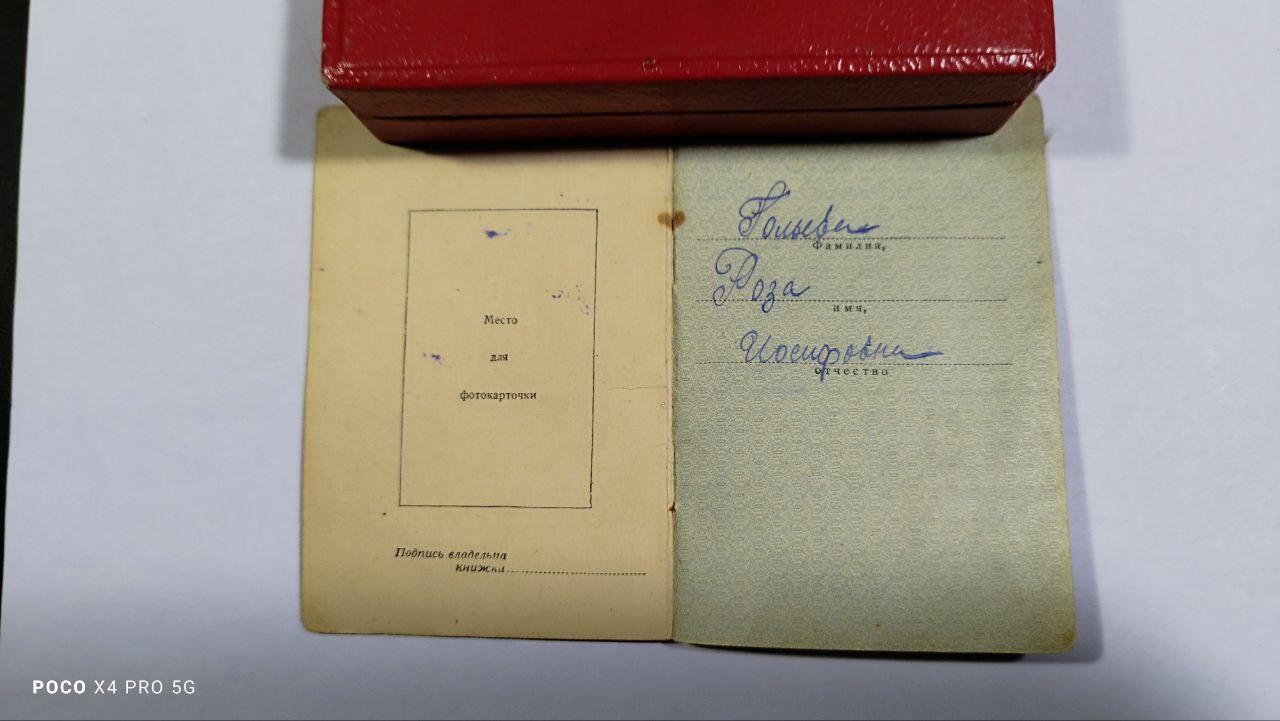 Место
для
фотокарточки
Подпись владельца
книжки
Гольева
Фамилия,
Роза
имя,
Иосифовна
отчество
POCO X4 PRO 5G